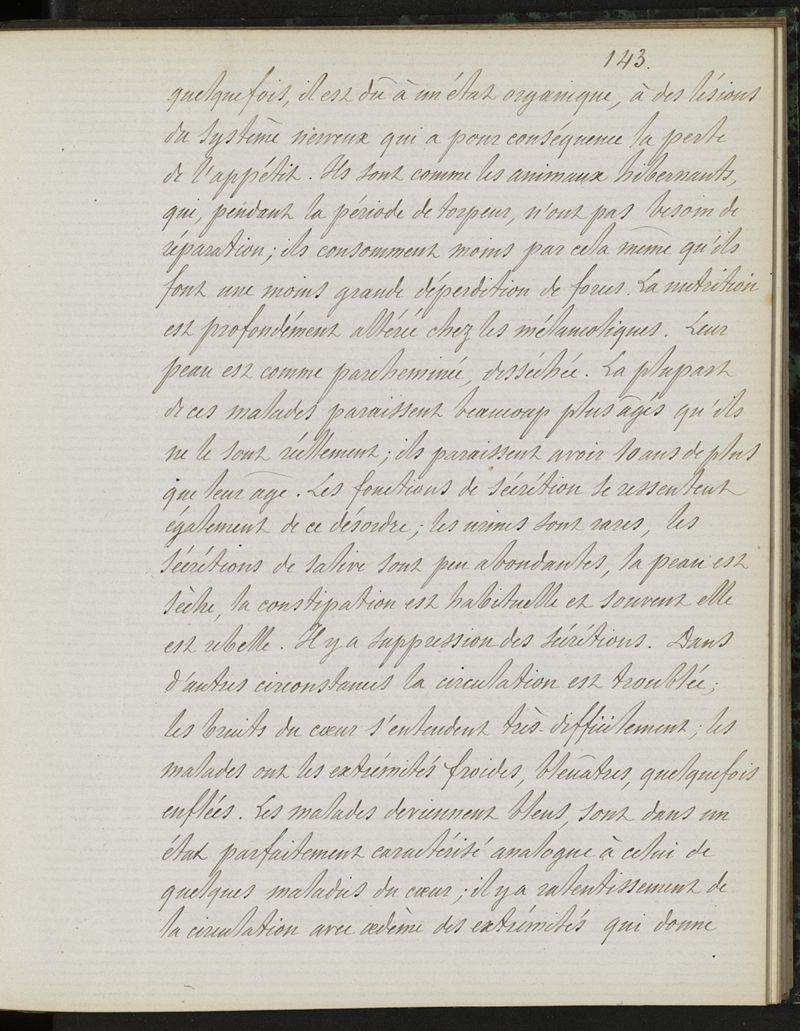 143.
quelquefois, il est dû à un état organique, à des lésions
du système nerveux qui a pour conséquence la perte
de l'appétit. Ils sont comme les animaux hibernants,
qui, pendant la période de torpeur, n'ont pas besoin de
réparation; ils consomment moins par cela même qu'ils
font une moins grande déperdition de forces. La nutrition
est profondément altérée chez les mélancoliques. Leur
peau est comme parcheminée, desséchée. La plupart
de ces malades paraissent beaucoup plus âgés qu'ils
ne le sont réellement; ils paraissent avoir 10 ans de plus
que leur âge. Les fonctions de sécrétion se ressentent
également de ce désordre; les urines sont rares, les
sécrétions de salive sont peu abondantes, la peau est
sèche, la constipation est habituelle et souvent elle
est rebelle. Il y a suppression des sécrétions. Dans
d'autres circonstances la circulation est troublée;
les bruits du cœur s'entendent très-difficilement; les
malades ont les extrémités froides, bleuâtres, quelquefois
enflées. Les malades deviennent bleus, sont dans un
état parfaitement caractérisé analogue à celui de
quelques maladies du cœur; il y a ralentissement de
la circulation avec œdème des extrémités qui donne